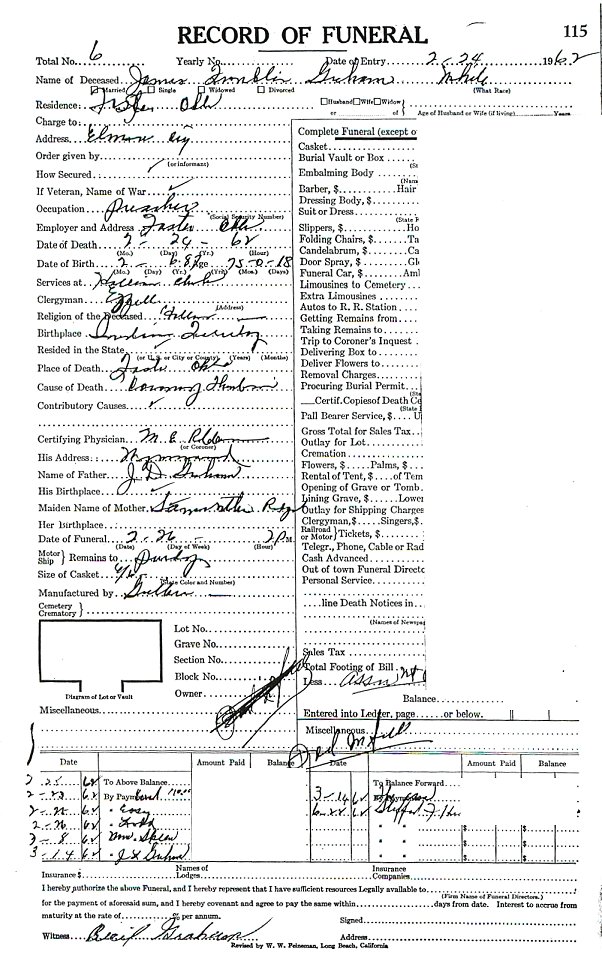 115
RECORD OF FUNERAL
Total No. 6 Yearly No. Date of Entry 2-24 1962
Name of Deceased James Graham White
Married Single Widowed Divorced (What Race)
Residence: Foster Okla Husband Wife Widow
or of Age of Husband or Wife (if living) Years
Charge to:
Address Elmore City
Order given by
(or informant)
How Secured
If Veteran, Name of War
Occupation Preacher
(Social Security Number)
Employer and Address Foster Okla
Date of Death 2-24-62
(Mo.) (Day) (Yr.) (Hour)
Date of Birth 2- Age 75-0-18
(Mo.) (Day) (Yr.) (Yrs.) (Mos.) (Days)
Services at Church
Clergyman Ezzell
(Address)
Religion of the Deceased
Birthplace Indian Territory
Resided in the State
(or U.S. or City or County) (Years) (Months)
Place of Death Foster Okla
Cause of Death Coronary
Contributory Causes
Certifying Physician M. E.
(or Coroner)
His Address Wynnewood
Name of Father J. D. Graham
His Birthplace
Maiden Name of Mother
Her Birthplace
Date of Funeral 2-26 2 P.M.
(Date) (Day of Week) (Hour)
Motor Ship Remains to Purdy
Size of Casket
(State Color and Number)
Manufactured by
Cemetery Crematory
Lot No.
Grave No.
Section No.
Block No.
Owner
Diagram of Lot or Vault
Miscellaneous
Complete Funeral (except o
Casket
Burial Vault or Box
(St
Embalming Body
(Nam
Barber, $ Hair
Dressing Body, $
Suit or Dress
(State F
Slippers, $ Ho
Folding Chairs, $ Ta
Candelabrum, $ Ca
Door Spray, $ Gl
Funeral Car, $ Aml
Limousines to Cemetery
Extra Limousines
Autos to R. R. Station
Getting Remains from
Taking Remains to
Trip to Coroner's Inquest
Delivering Box to
Deliver Flowers to
Removal Charges
Procuring Burial Permit
(Sta
Certif. Copies of Death Ce
(State
Pall Bearer Service, $ U
Gross Total for Sales Tax
Outlay for Lot
Cremation
Flowers, $ Palms, $
Rental of Tent, $ of Tem
Opening of Grave or Tomb
Lining Grave, $ Lower
Outlay for Shipping Charges
Clergyman, $ Singers, $
Railroad or Motor Tickets, $
Telegr., Phone, Cable or Rad
Cash Advanced
Out of town Funeral Directo
Personal Service
line Death Notices in
(Names of Newspa
Sales Tax
Total Footing of Bill
Less Assn
Balance
Entered into Ledger, page or below.
Miscellaneous
Date Amount Paid Balance Date Amount Paid Balance
2-25 62 To Above Balance To Balance Forward
62 By Payment 3-14 62 By Payment
62 62
2-26 62
3-8 62
3-14 62
Insurance $ Names of Lodges Insurance Companies
I hereby authorize the above Funeral, and I hereby represent that I have sufficient resources Legally available to
(Firm Name of Funeral Directors.)
for the payment of aforesaid sum, and I hereby covenant and agree to pay the same within days from date. Interest to accrue from
maturity at the rate of % per annum. Signed
Witness Graham Address
Revised by W. W. Peineman, Long Beach, California